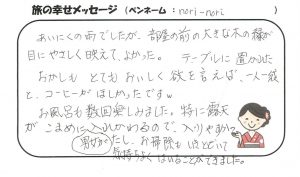 旅の幸せメッセージ（ペンネーム：nori-nori　）
あいにくの雨でしたが、部屋の前の大きな木の緑が
目にやさしく映えて、よかった。テーブルに置かれた
おかしも とても おいしく 欲を言えば、一人一袋
と、コーヒーがほしかったですw
お風呂も数回楽しみました。特に露天
が こまめに入れかわるので、入りやすかっ
男女が
たし、お掃除も ほどといて
気持ちよく はいることができました。